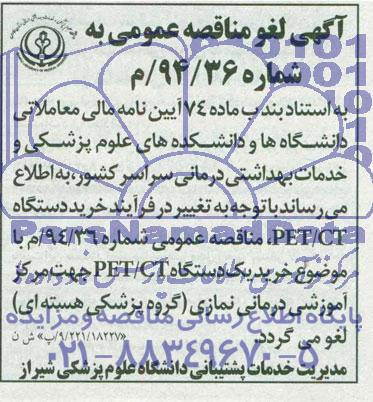 آگهی لغو مناقصه عمومی به
شماره ۹۴/۳۶/م
به استناد بند ب ماده ۷۴ آیین نامه مالی معاملاتی
دانشگاه ها و دانشکده های علوم پزشکی و
خدمات بهداشتی درمانی سراسر کشور، به اطلاع
می رساند با توجه به تغییر در فرآیند خرید دستگاه
PET/CT، مناقصه عمومی شماره ۹۴/۳۶/م با
موضوع خرید یک دستگاه PET/CT جهت مرکز
آموزشی درمانی نمازی (گروه پزشکی هسته ای)
لغو می گردد.
۹/۲۲۱/۱۸۲۲۷/پ» ش ن
مدیریت خدمات پشتیبانی دانشگاه علوم پزشکی شیراز
ParsNamadData
پایگاه اطلاع رسانی مناقصه و مزایده
۰۲۱-۸۸۳۴۹۶۷۰-۵